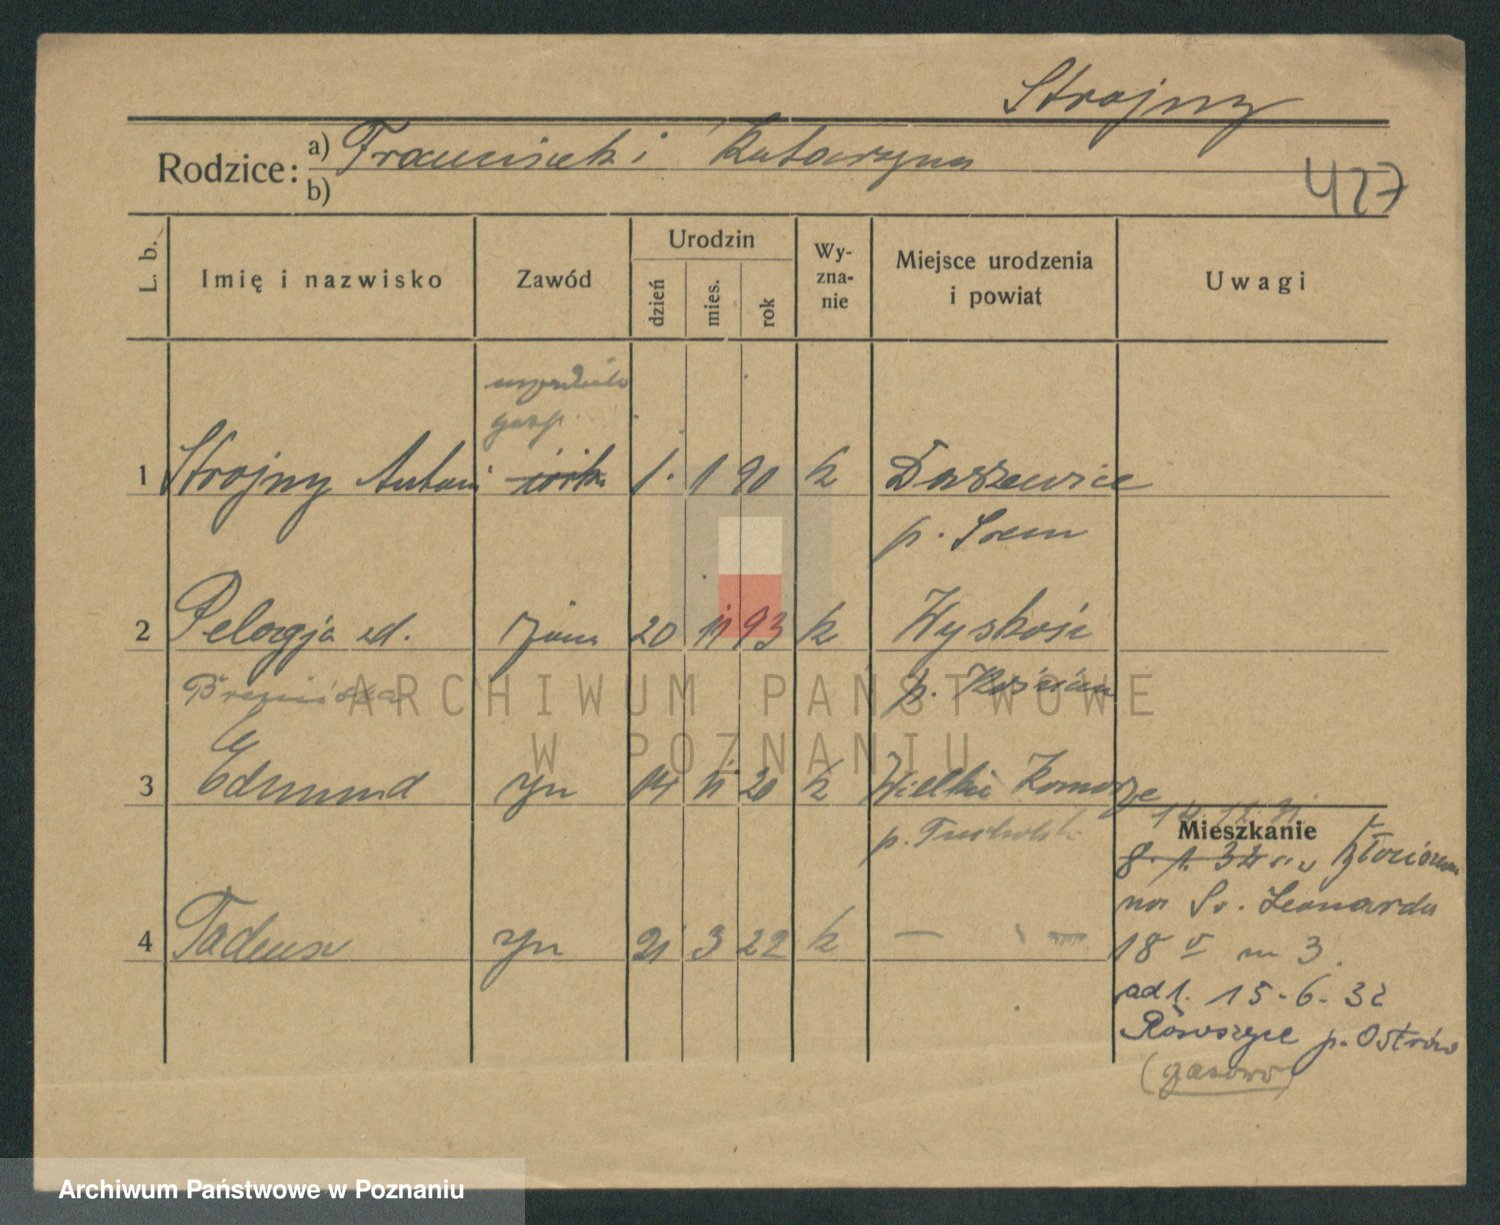 Strojny
Rodzice: a) Franciszek i Katarzyna
b)
427
L. b. Imię i nazwisko Zawód Urodzin dzień mies. rok Wyzna-nie Miejsce urodzenia i powiat Uwagi
gosp.
1 Strojny Antoni 1. 1 90 k Daszewice
p. Śrem
2 Pelagja zd. żona 20 11 93 k Wyskość
p. Kościan
3 Edmund syn 14 11 20 k Wielkie Komorze
p. Tucholski
14 12 31
Mieszkanie
8. 1. 32
na Św. Leonarda
4 Tadeusz syn 21 3 22 k — —
18 m 3.
ad 1. 15-6-32
p. Ostrów
ARCHIWUM PAŃSTWOWE
W POZNANIU
Archiwum Państwowe w Poznaniu